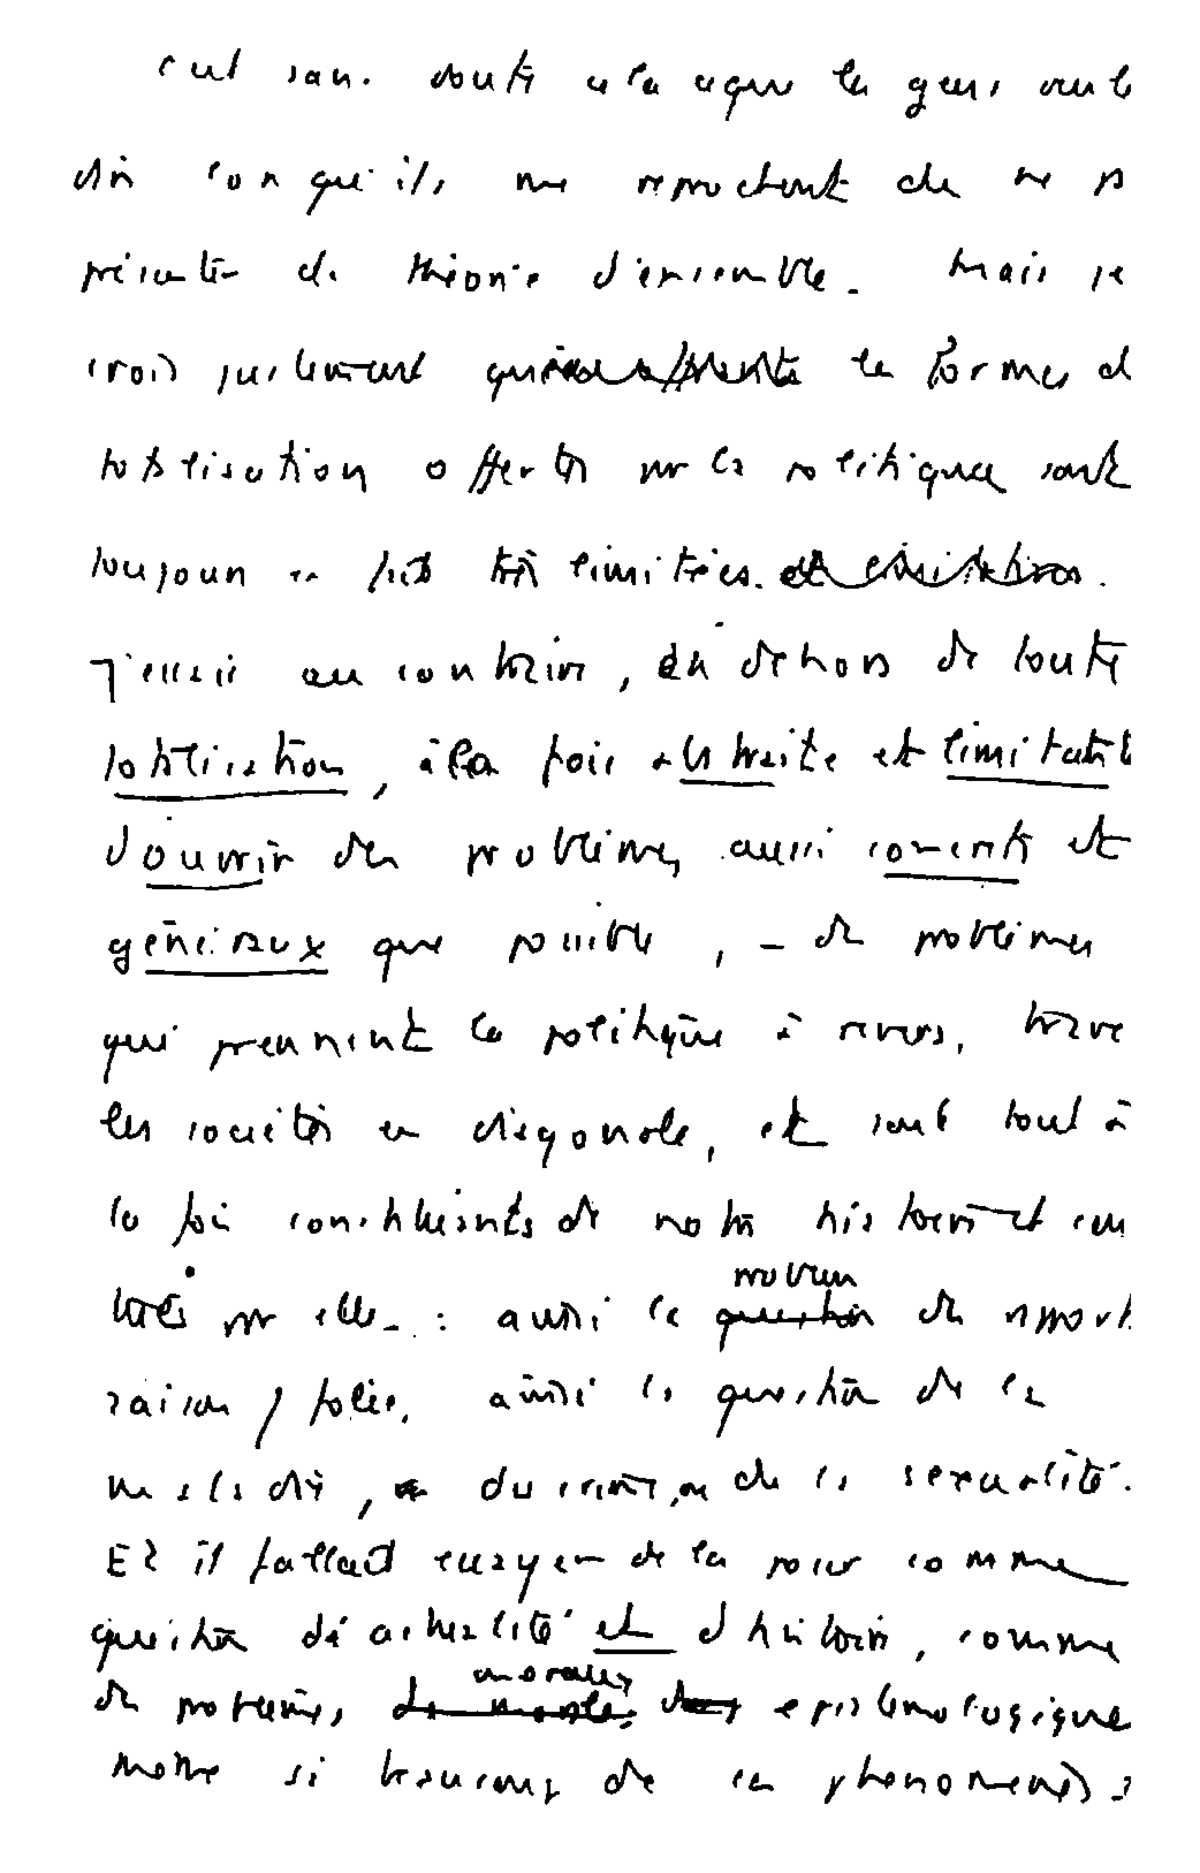 c'est sans doute à cela que les gens veulent
dire lorsqu'ils me reprochent de ne pas
présenter de théorie d'ensemble. Mais je
crois justement que les formes de
totalisation offertes par la politique sont
toujours en fait très limitées.
J'essaie au contraire, en dehors de toute
totalisation, à la fois abstraite et limitative
d'ouvrir des problèmes aussi concrets et
généraux que possible, – des problèmes
qui prennent la politique à revers, traversent
les sociétés en diagonale, et sont tout à
la fois constituants de notre histoire et constitués
par elle : ainsi le problème des rapports
raison / folie, ainsi la question de la
maladie, du crime, ou de la sexualité.
Et il fallait essayer de la poser comme
question d'actualité et d'histoire, comme
des problèmes moraux, épistémologiques
même si beaucoup de ces phénomènes